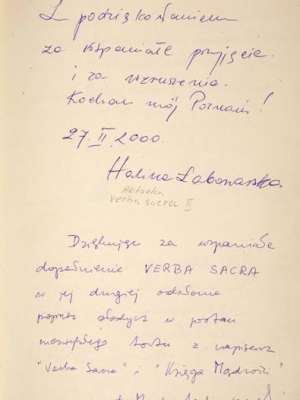 Z podziękowaniem
za wspaniałe przyjęcie
i za wzruszenia.
Kocham mój Poznań!
27.II.2000.
Halina Łabonarska
Aktorka
Verba Sacra II
Dziękuję za wspaniałe
dopełnienie VERBA SACRA
w jej drugiej odsłonie
poprzez słodycz w postaci
tortu z napisem
"Verba Sacra" i "Księga Mądrości"